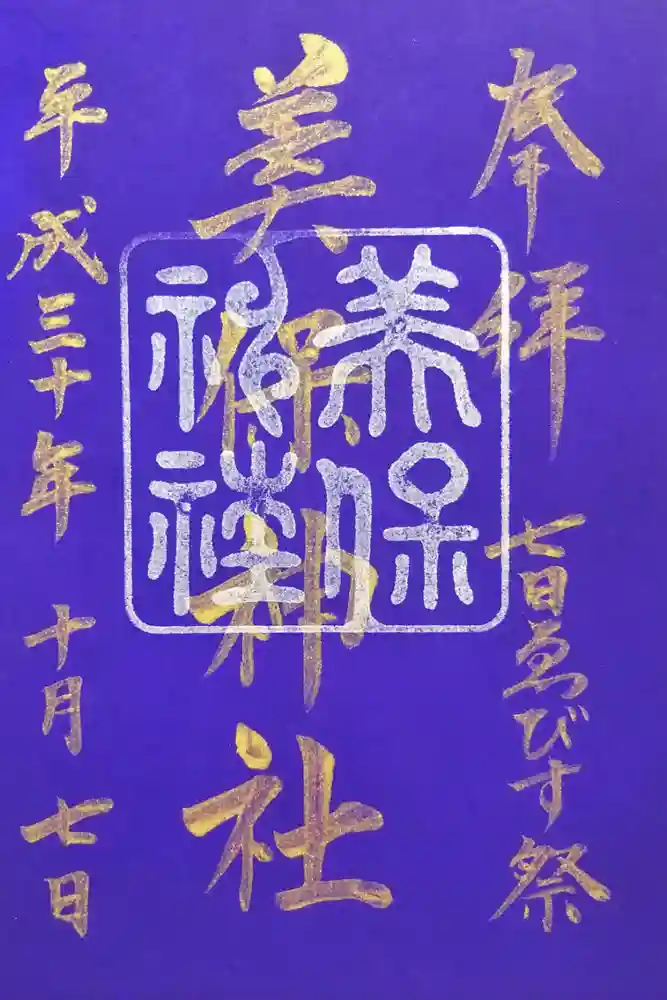 奉拝
七日ゑびす祭
美保神社
美保神社
平成三十年十月七日